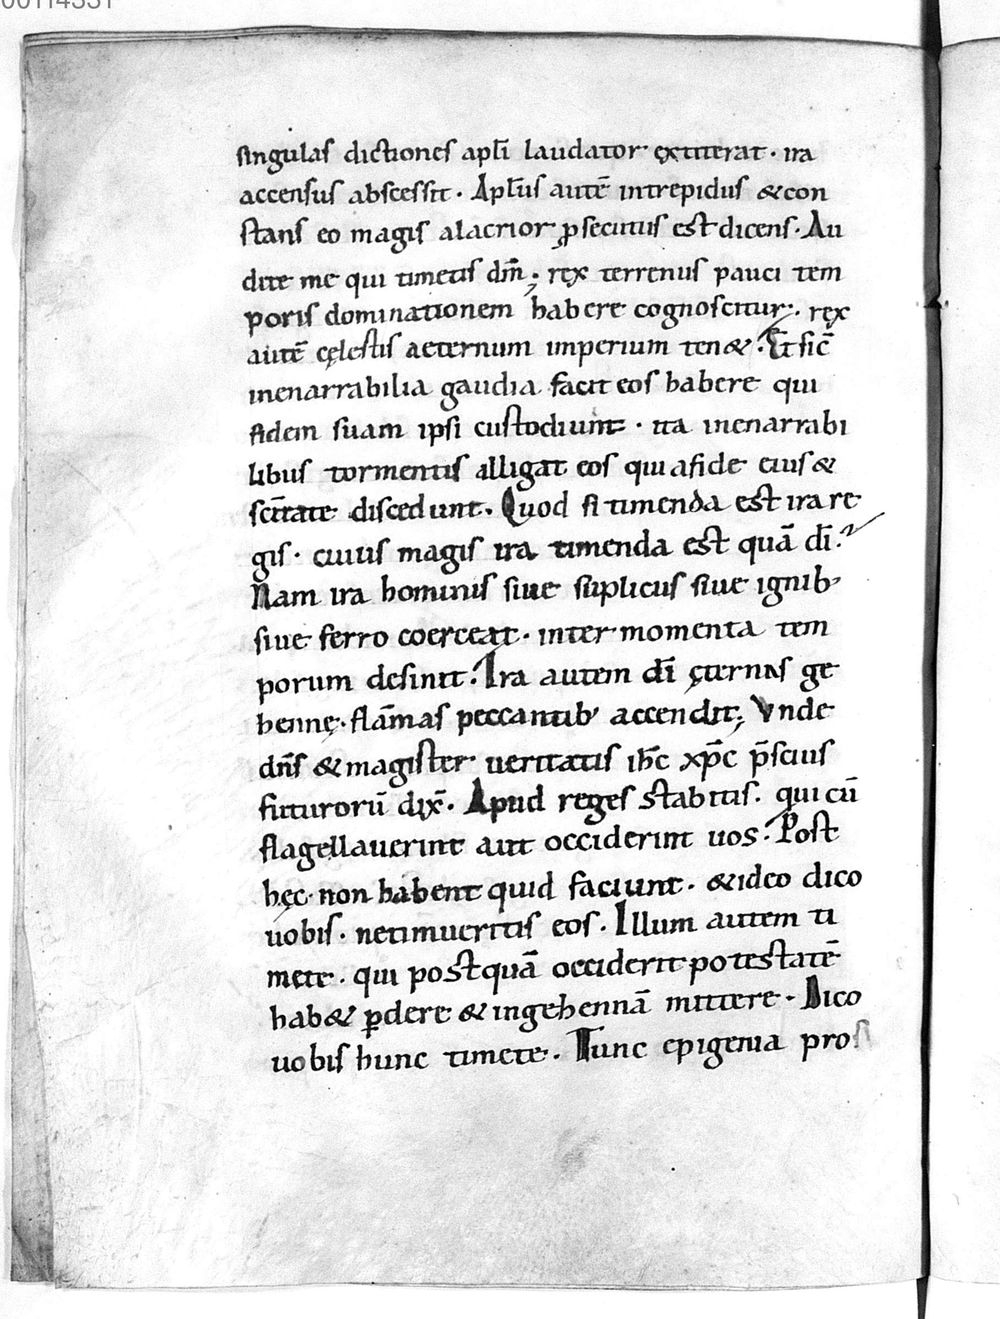 00114331
singulas dictiones apłi laudator extiterat · ira
accensus abscessit · Apłus autē intrepidus &con
stans eo magis alacrior ꝓsecutus est dicens · Au
dite me qui timetis dm̄; rex terrenus pauci tem
poris dominationem habere cognoscitur; · ręx
autē cęlestis aeternum imperium ten& · Et sic̄
inenarrabilia gaudia facit eos habere qui
fidem suam ipsi custodiunt · ita inenarrabi
libus tormentis alligat eos qui afide eius &
sc̄itate discedunt. Quod si timenda est ira re
gis · cuius magis ira timenda est quā dī?
Nam ira hominis siue supliciis siue ignib'
siue ferro coerceat · inter momenta tem
porum desinit. Ira autem dī ęternas ge
hennę · flāmas peccantib' accendit; Vnde
dn̄s & magister ueritatis ih̄c xp̄c p̄scius
futurorū dix̄ · Apud reges stabitis · qui cū
flagellauerint aut occiderint uos · Post
hęc non habent quid faciunt · &ideo dico
uobis · ne timueritis eos · Illum autem ti
mete · qui postquā occiderit potestatē
hab& ꝑdere & ingehennā mittere · Dico
uobis hunc timete · Tunc epigenia pros